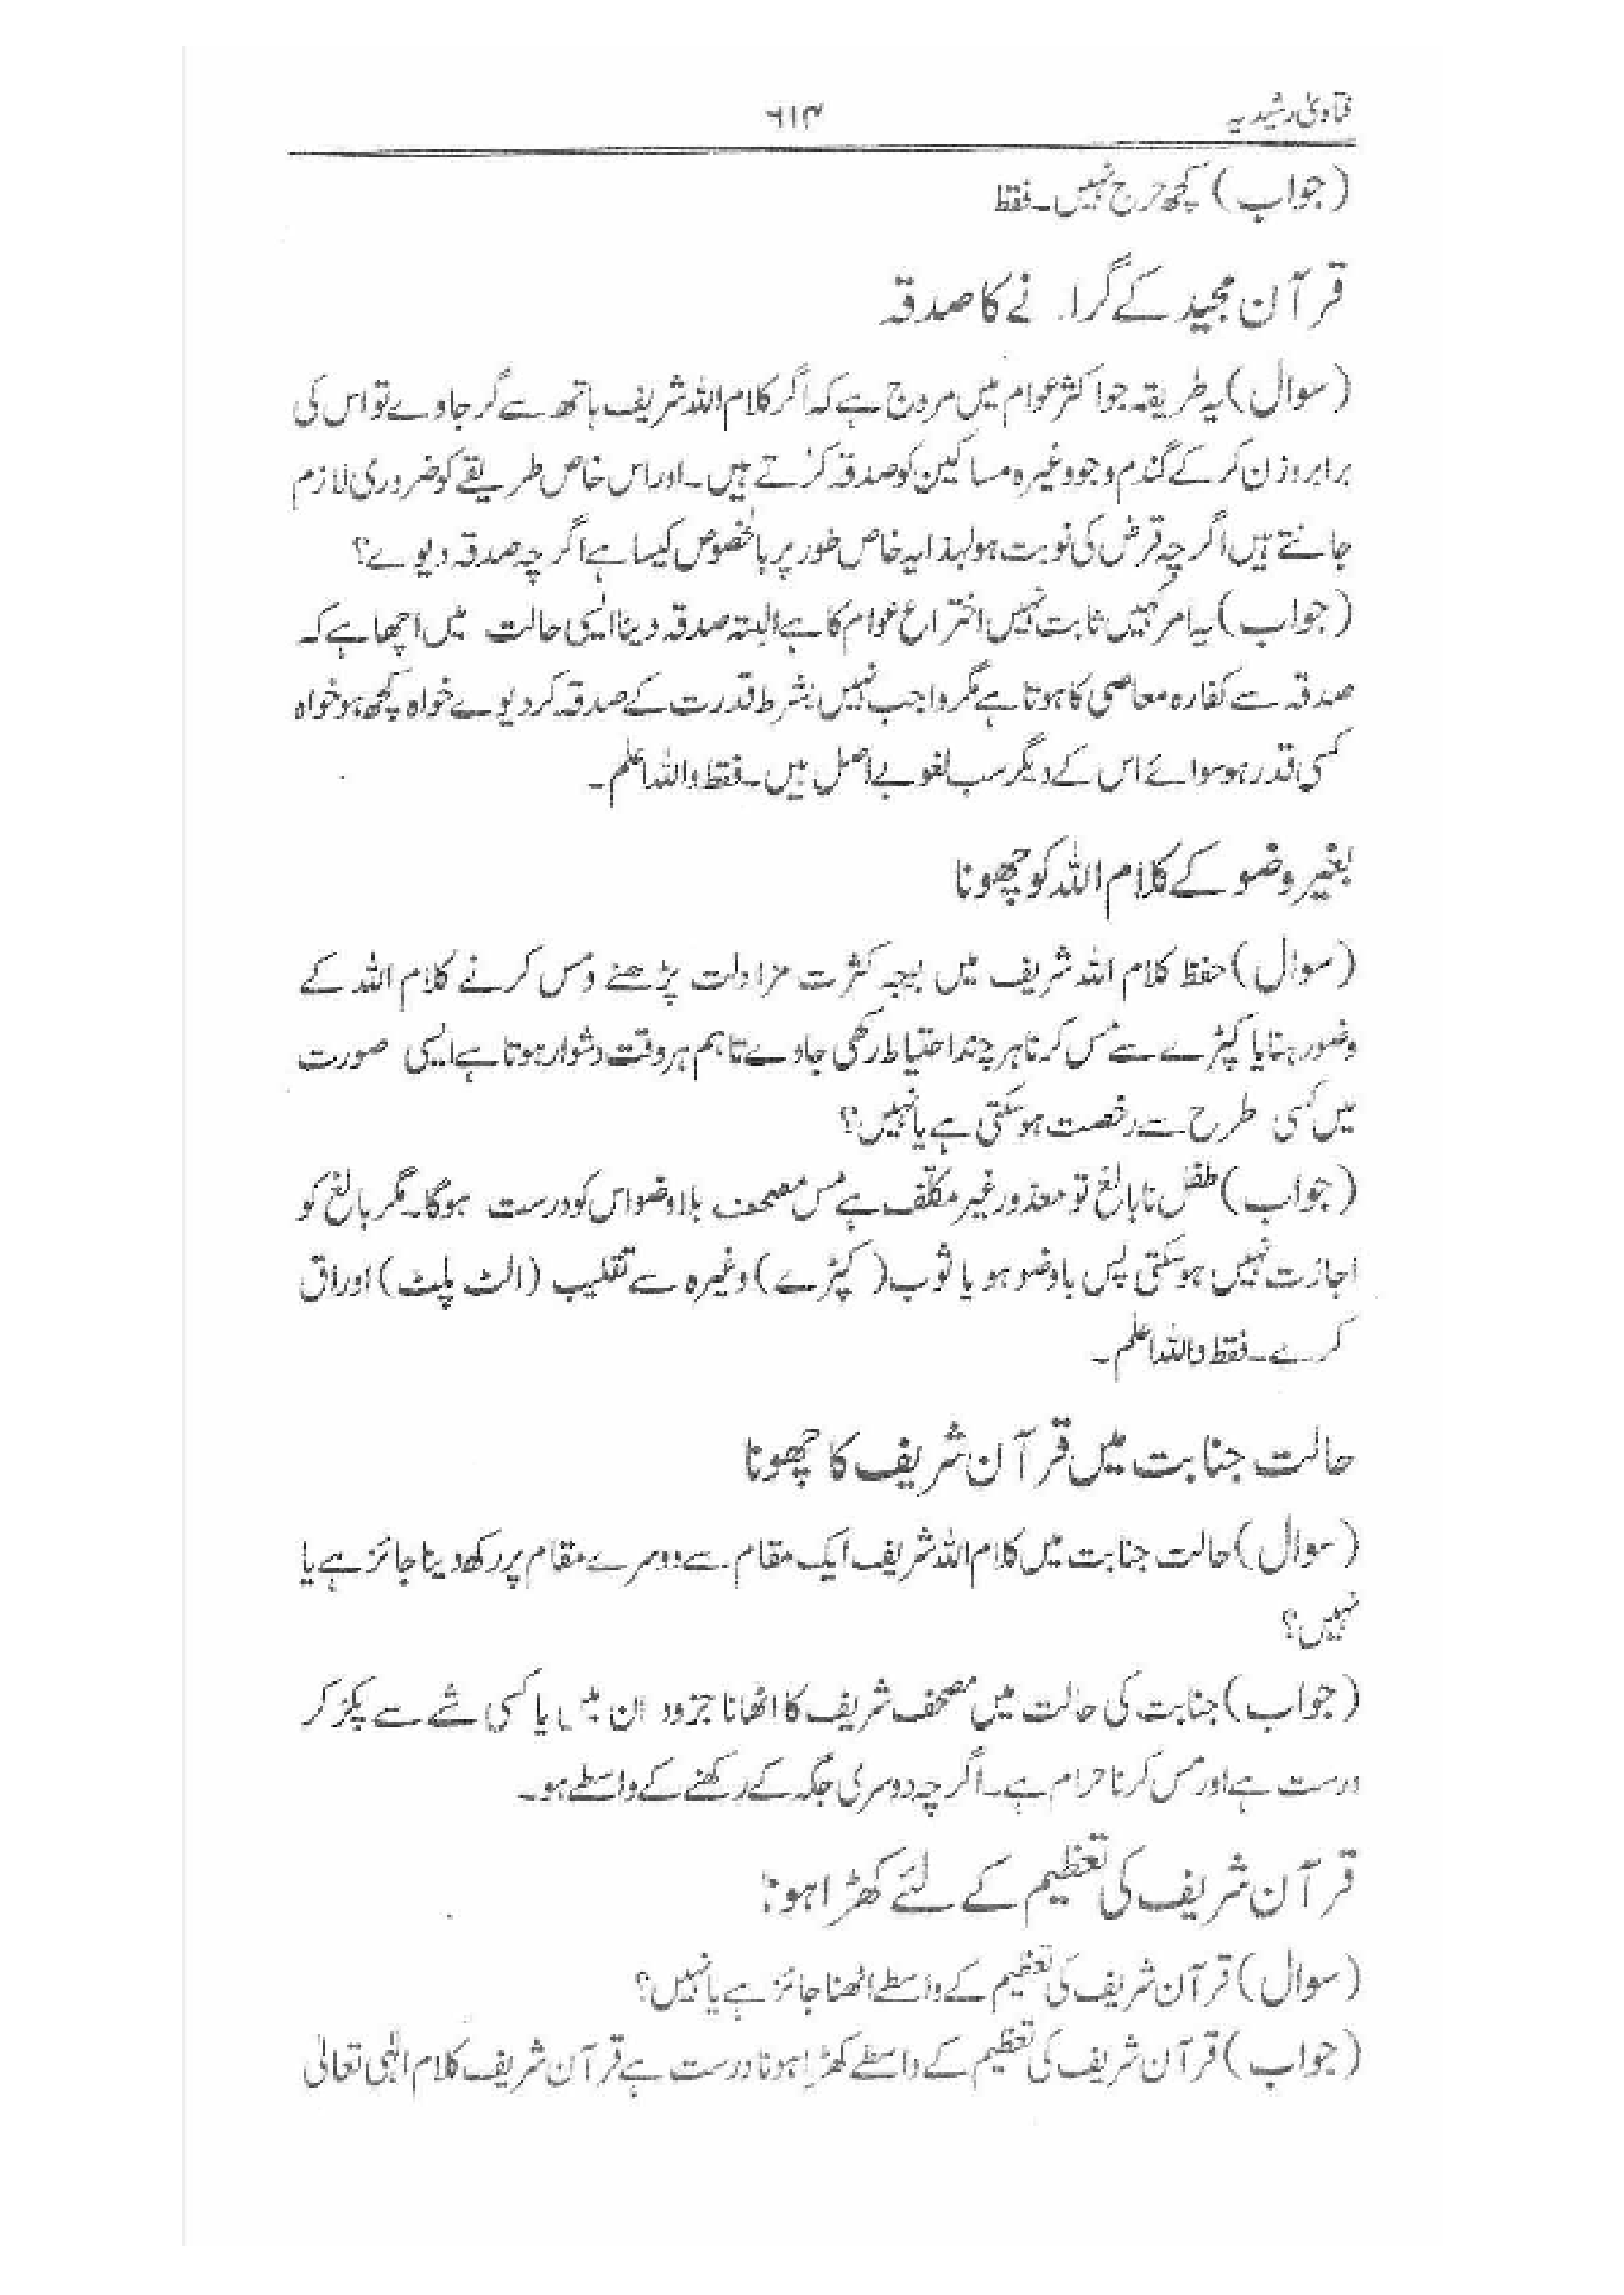 فتاویٰ رشیدیہ ۶۱۳
(جواب) کچھ حرج نہیں۔ فقط
قرآن مجید کے گرانے کا صدقہ
(سوال) یہ طریقہ جو اکثر عوام میں مروج ہے کہ اگر کلام اللہ شریف ہاتھ سے گر جاوے تو اس کی
برابر وزن کر کے گندم و جو وغیرہ مساکین کو صدقہ کرتے ہیں۔ اور اس خاص طریقے کو ضروری لازم
جانتے ہیں اگرچہ قرض کی نوبت ہو لہذا یہ خاص طور پر بالخصوص کیسا ہے اگرچہ صدقہ دیوے؟
(جواب) یہ امر کہیں ثابت نہیں اختراع عوام کا ہے البتہ صدقہ دینا ایسی حالت میں اچھا ہے کہ
صدقہ سے کفارہ معاصی کا ہوتا ہے مگر واجب نہیں بشرط قدرت کے صدقہ کر دیوے خواہ کچھ ہو خواہ
کسی قدر ہو سوائے اس کے دیگر سب لغو بے اصل ہیں۔ فقط واللہ اعلم۔
بغیر وضو کے کلام اللہ کو چھونا
(سوال) حفظ کلام اللہ شریف میں بوجہ کثرت مزاولت پڑھنے و مس کرنے کلام اللہ کے
وضو رہنا یا کپڑے سے مس کرنا ہر چند احتیاط رکھی جاوے تاہم ہر وقت دشوار ہوتا ہے ایسی صورت
میں کسی طرح سے رخصت ہو سکتی ہے یا نہیں؟
(جواب) طفل نابالغ تو معذور غیر مکلف ہے مس مصحف بلا وضو اس کو درست ہوگا۔ مگر بالغ کو
اجازت نہیں ہو سکتی پس با وضو ہو یا ثوب (کپڑے) وغیرہ سے تقلیب (الٹ پلٹ) اوراق
کرے۔ فقط واللہ اعلم۔
حالت جنابت میں قرآن شریف کا چھونا
(سوال) حالت جنابت میں کلام اللہ شریف ایک مقام سے دوسرے مقام پر رکھ دینا جائز ہے یا
نہیں؟
(جواب) جنابت کی حالت میں مصحف شریف کا اٹھانا جزودان میں یا کسی شے سے پکڑ کر
درست ہے اور مس کرنا حرام ہے۔ اگرچہ دوسری جگہ کے رکھنے کے واسطے ہو۔
قرآن شریف کی تعظیم کے لئے کھڑا ہونا
(سوال) قرآن شریف کی تعظیم کے واسطے اٹھنا جائز ہے یا نہیں؟
(جواب) قرآن شریف کی تعظیم کے واسطے کھڑا ہونا درست ہے قرآن شریف کلام الٰہی تعالیٰ